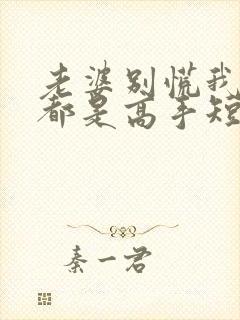 老婆别慌我
都是高手短
秦一君